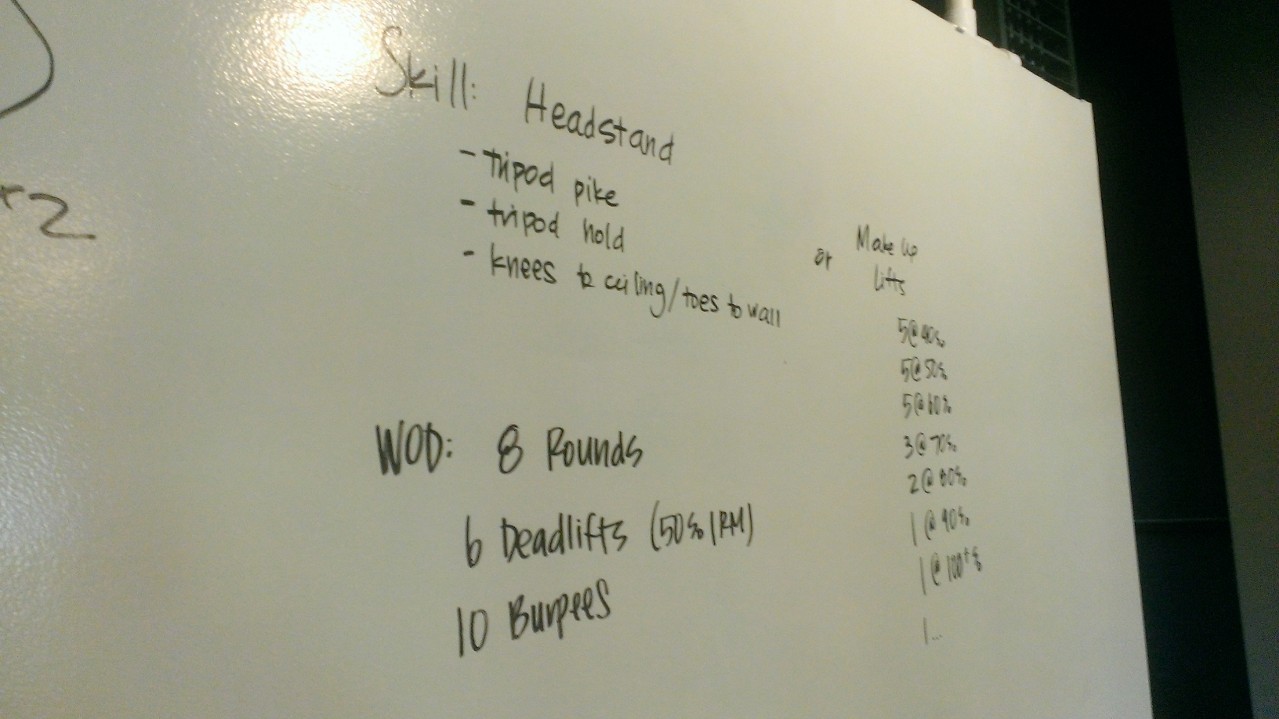 Skill: Headstand
- tripod pike
- tripod hold
- knees to ceiling/toes to wall
or Make up
lifts
5@40%
5@50%
5@60%
3@70%
2@80%
1@90%
1@100+%
1...
WOD: 8 Rounds
6 Deadlifts (50% 1RM)
10 Burpees